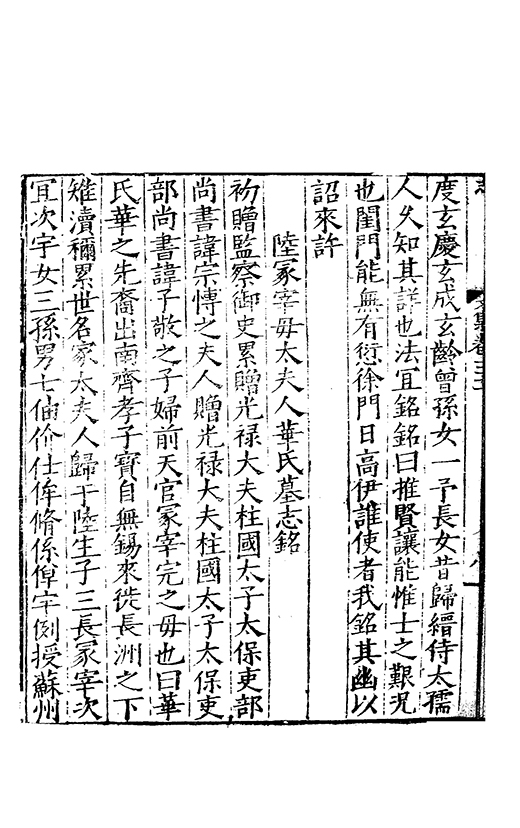 度玄慶玄成玄齡曾孫女一予長女昔歸縉侍太孺
人久知其詳也法宜銘銘曰推賢讓能惟士之艱況
也閨門能無有愆徐門日高伊誰使者我銘其幽以
詔來許
陸冢宰母太夫人華氏墓志銘
初贈監察御史累贈光禄大夫柱國太子太保吏部
尚書諱宗慱之夫人贈光禄大夫柱國太子太保吏
部尚書諱子敬之子婦前天官冢宰完之母也曰華
氏華之先裔出南齊孝子寳自無錫來徙長洲之下
雉瀆稱累世名家太夫人歸于陸生子三長冢宰次
宜次宇女三孫男七伷价仕侔脩係倬宇例授蘇州